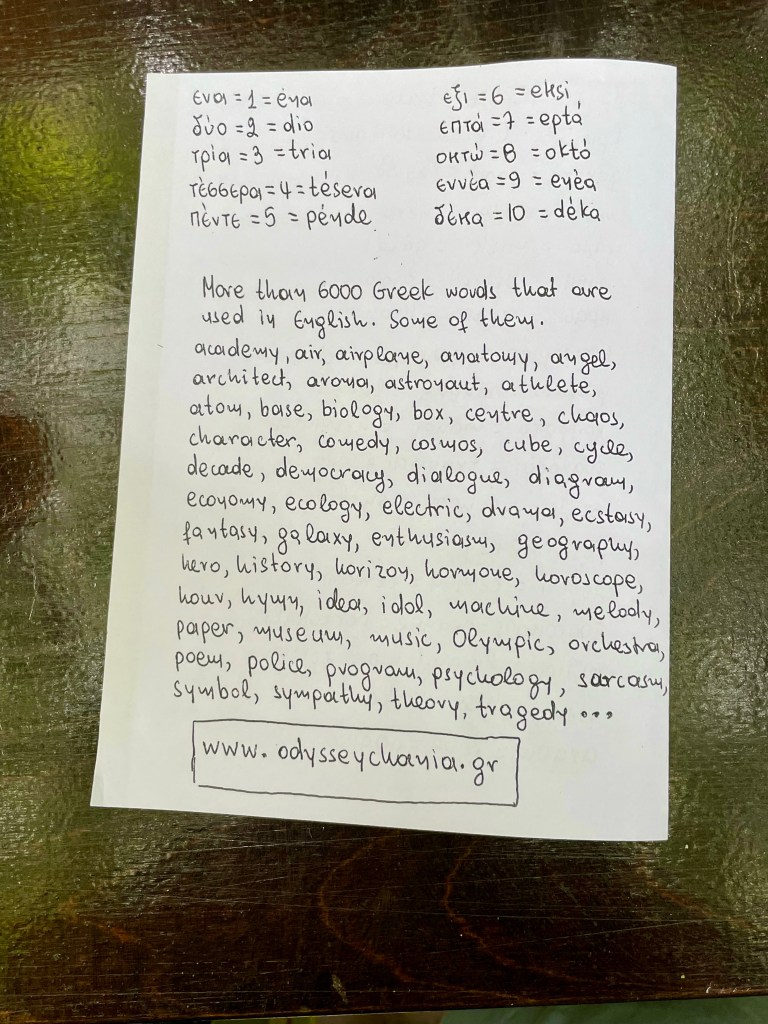 ενα = 1 = éna
δύο = 2 = dio
τρία = 3 = tria
τέσσερα = 4 = tésera
πέντε = 5 = pénde
εξι = 6 = eksi
επτά = 7 = eptá
οκτώ = 8 = októ
εννέα = 9 = enèa
δέκα = 10 = déka
More than 6000 Greek words that are
used in English. Some of them.
academy, air, airplane, anatomy, angel,
architect, aroma, astronaut, athlete,
atom, base, biology, box, centre, chaos,
character, comedy, cosmos, cube, cycle,
decade, democracy, dialogue, diagram,
economy, ecology, electric, drama, ecstasy,
fantasy, galaxy, enthusiasm, geography,
hero, history, horizon, hormone, horoscope,
hour, hymn, idea, idol, machine, melody,
paper, museum, music, Olympic, orchestra,
poem, police, program, psychology, sarcasm,
symbol, sympathy, theory, tragedy ...
www.odysseychania.gr